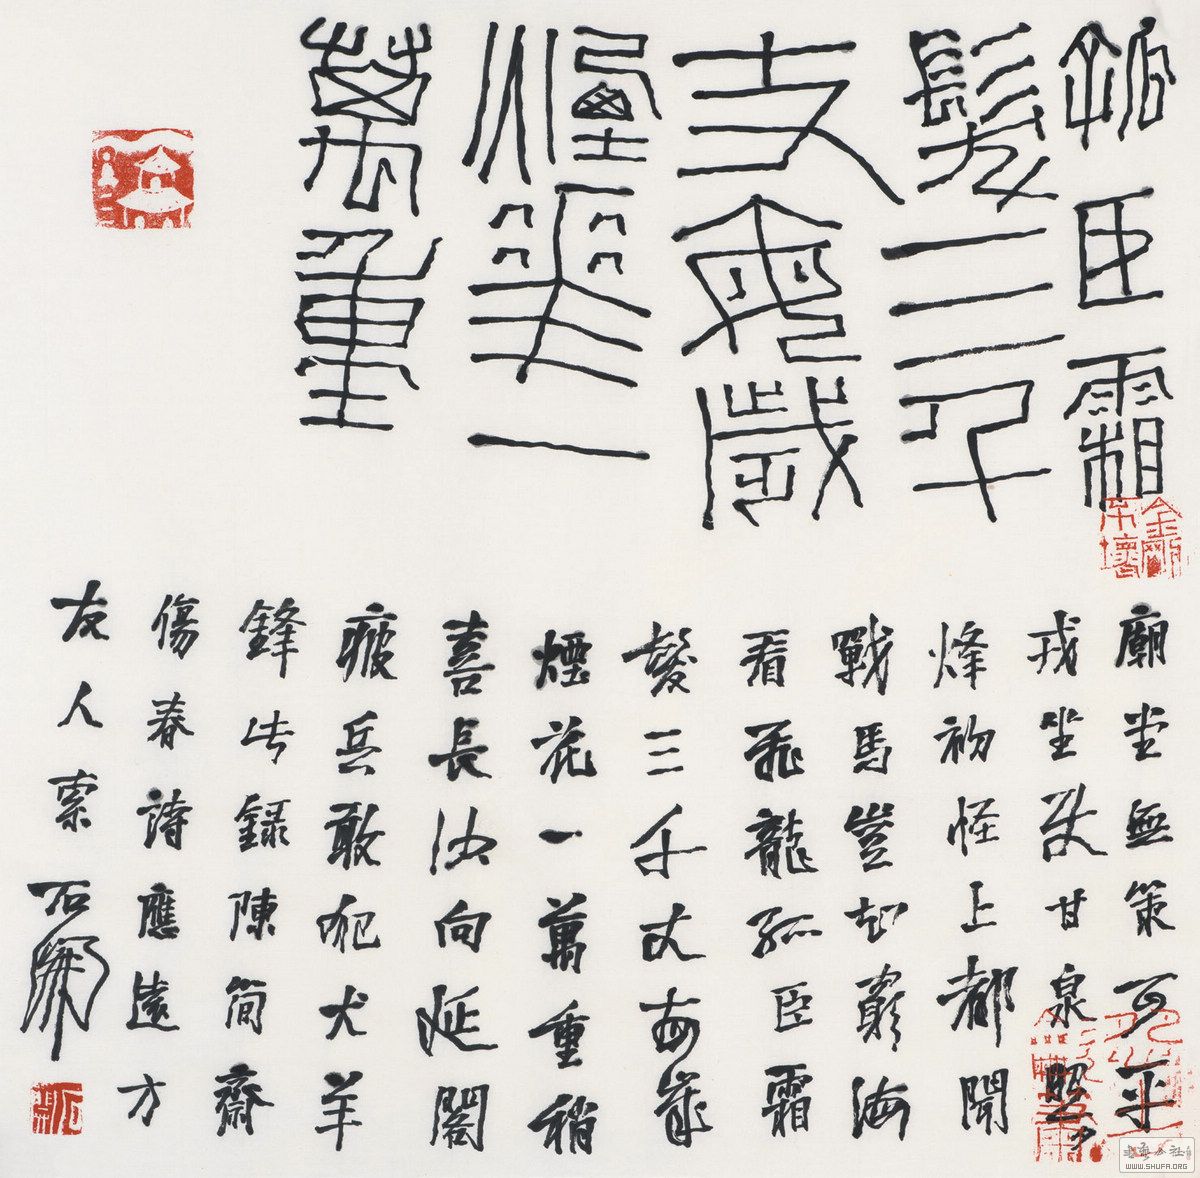 孤臣霜
髮三千
丈每歲
煙花一
萬重
金剛不壞
廟堂無策可平
戎坐使甘泉照夕
烽初怪上都聞
戰馬豈知窮海
看飛龍孤臣霜
髮三千丈每歲
煙花一萬重稍
喜長沙向延閣
疲兵敢犯犬羊
鋒此錄陳簡齋
傷春詩應遠方
友人索 石開
WWW.SHUFA.ORG